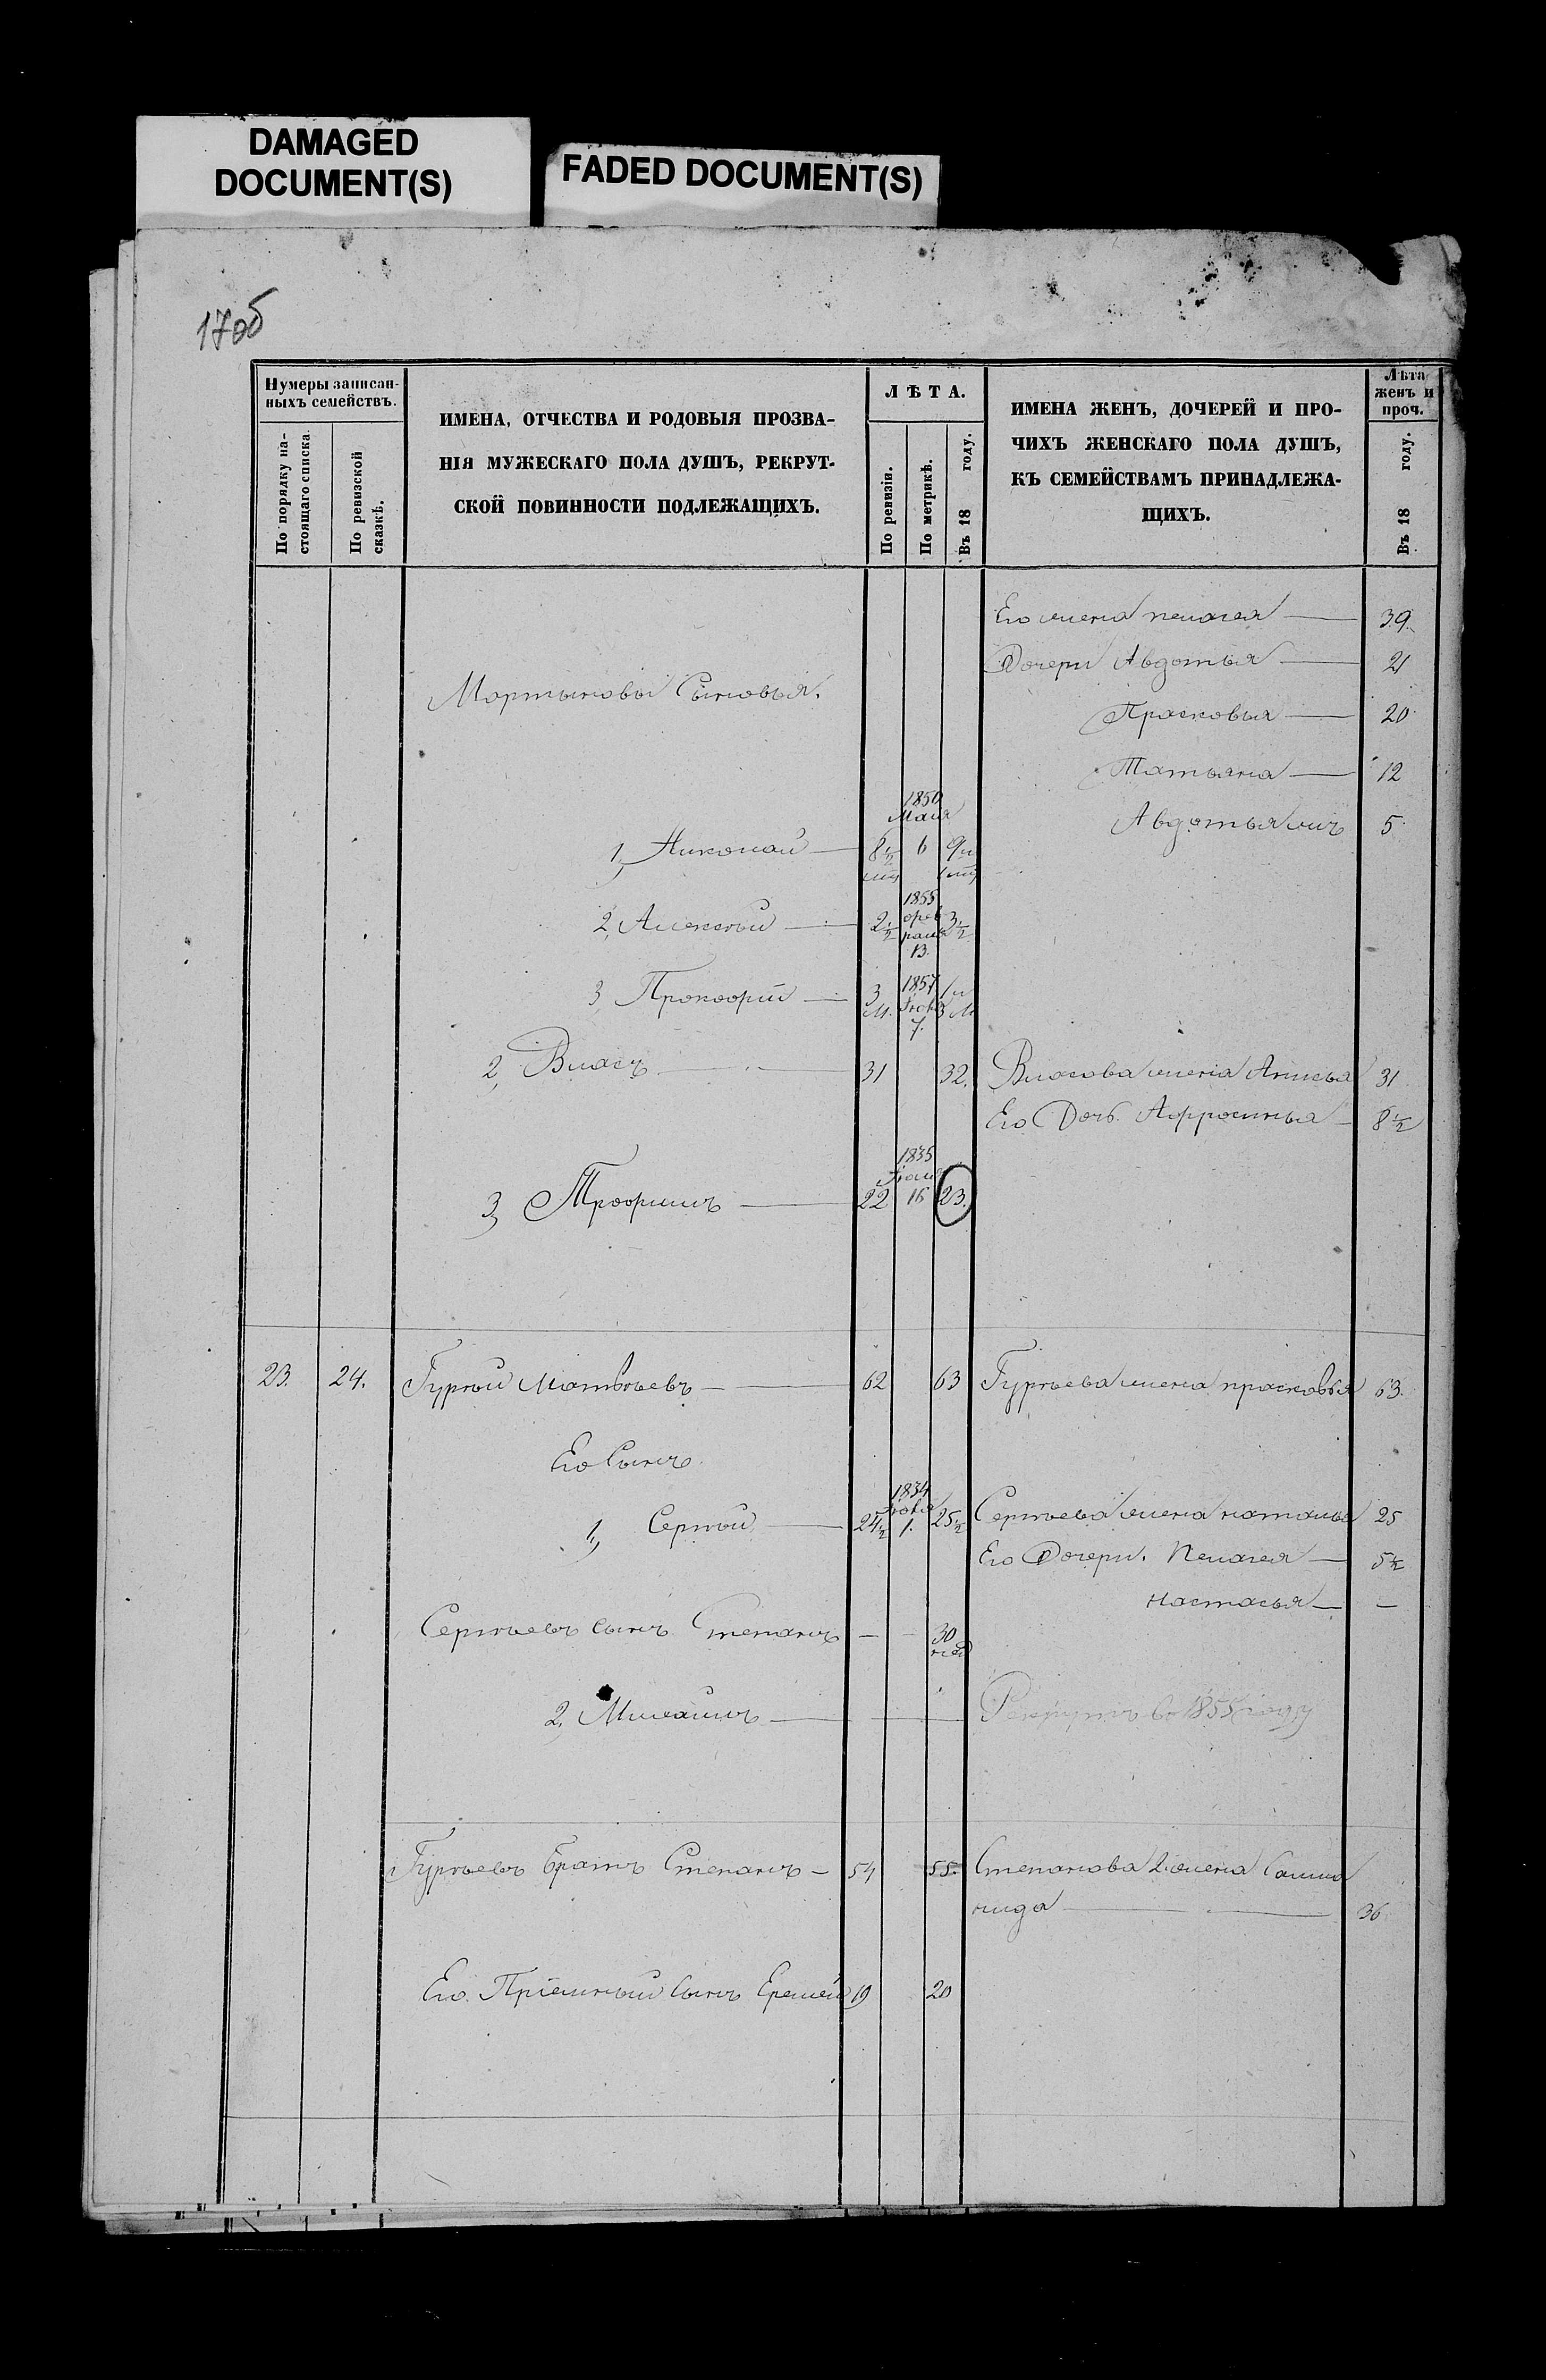 DAMAGED
DOCUMENT(S)
FADED DOCUMENT(S)
17об
Нумеры записан-
ныхъ семействъ.
По порядку на-
стоящаго списка.
По ревизской
сказкѣ.
ИМЕНА, ОТЧЕСТВА И РОДОВЫЯ ПРОЗВА-
НІЯ МУЖЕСКАГО ПОЛА ДУШЪ, РЕКРУТ-
СКОЙ ПОВИННОСТИ ПОДЛЕЖАЩИХЪ.
ЛѢТА.
По ревизіи.
По метрикѣ.
Въ 18 году.
ИМЕНА ЖЕНЪ, ДОЧЕРЕЙ И ПРО-
ЧИХЪ ЖЕНСКАГО ПОЛА ДУШЪ,
КЪ СЕМЕЙСТВАМЪ ПРИНАДЛЕЖА-
ЩИХЪ.
Лѣта
женъ и
проч.
Въ 18 году.
Его жена пелагея — 39.
Дочери Авдотья — 21
Мартыновы Сыновья.
Прасковья — 20
Татьяна — 12
Авдотья 5
1850
Мая
1, Николай — 8 1/2 6
1855
2, Алексѣй — 2 1/2 фев 3 1/2
раля
13.
1857
3 Прокофій — 3 1 и
м. 3 м
7.
2, Власъ — 31 32. Власова жена Анисья 31
Его Дочь Афросинья — 8 1/2
1835
Іюля
3, Трофимъ — 22 16 23.
23. 24. Гурѣй Матвѣевъ — 62 63 Гурѣева жена прасковья 63.
Его Сынъ
1834
1, Сергѣй — 24 1/2 1. 25 1/2 Сергѣева жена наталья 25
Его Дочери. Пелагея — 5 1/2
настасья — —
Сергѣевъ сынъ Степанъ — — 30
нед
2, Михаилъ — Рекрутъ въ 1855 году
Гурѣевъ братъ Степанъ — 54 55. Степанова 2. жена Соломо
нида — 36
Его Пріемный сынъ Еремей 19 20